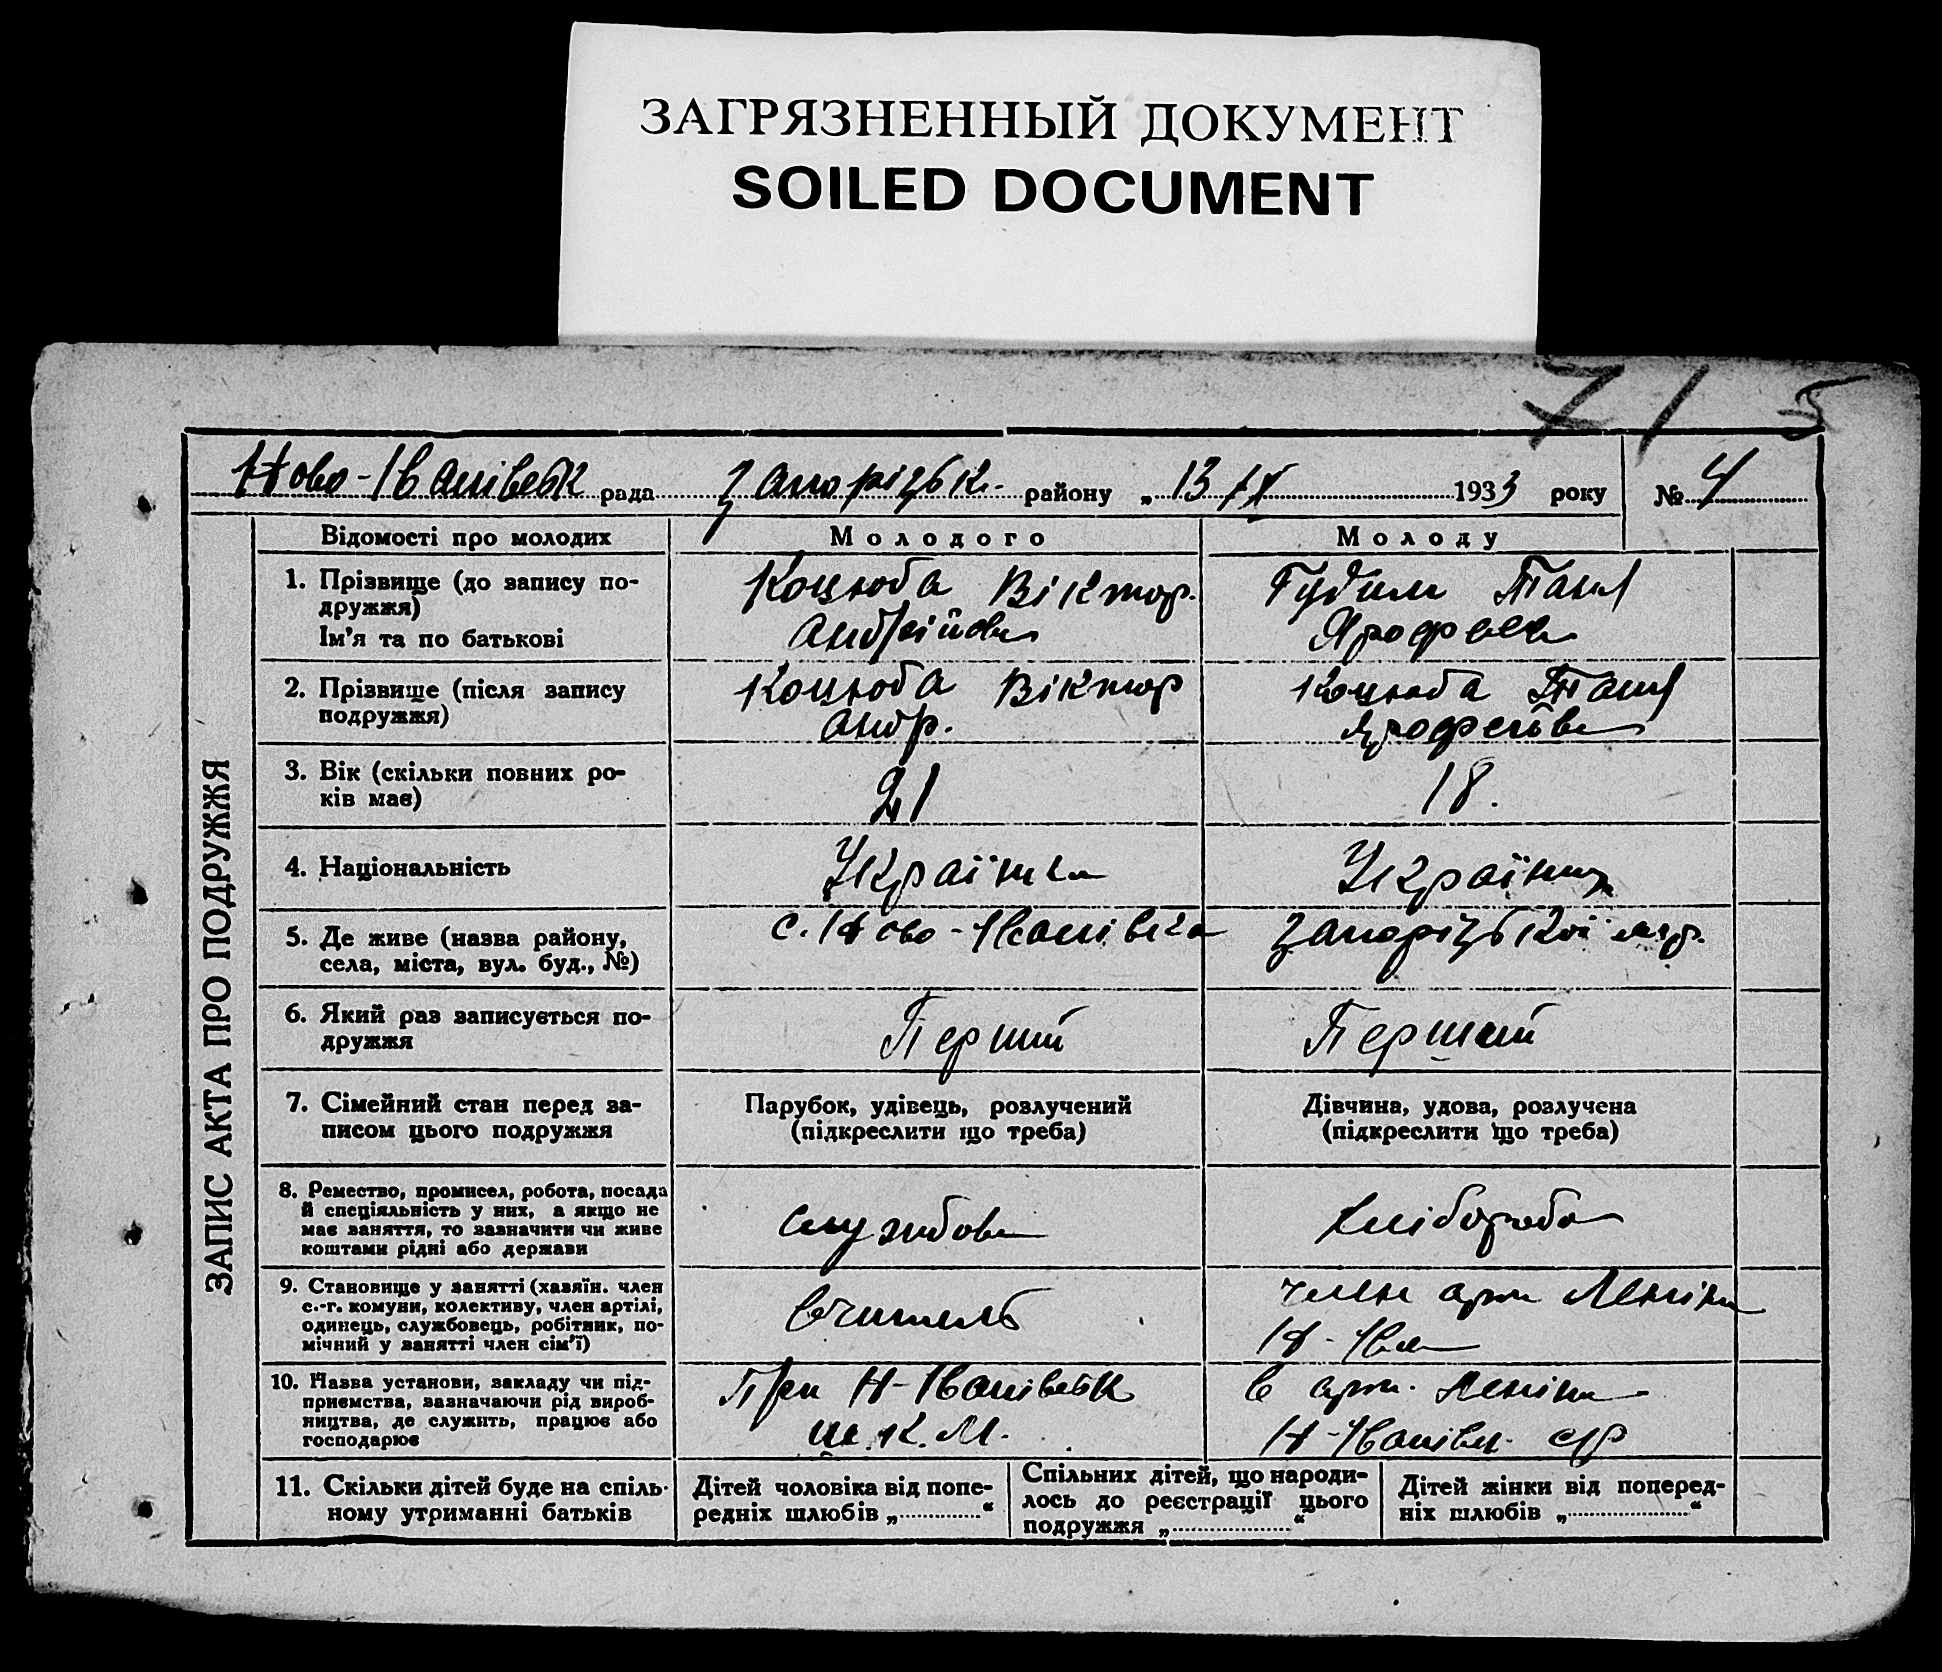 ЗАГРЯЗНЕННЫЙ ДОКУМЕНТ
SOILED DOCUMENT
71 5
Ново-Іванівськ рада Запорізьк. району „ 13 1933 року № 4
ЗАПИС АКТА ПРО ПОДРУЖЖЯ
Відомості про молодих Молодого Молоду
1. Прізвище (до запису по-
дружжя)
Ім'я та по батькові
Коцюба Віктор.
Андрійов
Таня
2. Прізвище (після запису
подружжя)
Коцюба Віктор
Андр.
Коцюба Таня
3. Вік (скільки повних ро-
ків має)
21
18.
4. Національність
Українка
5. Де живе (назва району,
села, міста, вул. буд., №)
с. Ново-Іванівка
Запорізької
6. Який раз записується по-
дружжя
Перший
Перший
7. Сімейний стан перед за-
писом цього подружжя
Парубок, удівець, розлучений
(підкреслити що треба)
Дівчина, удова, розлучена
(підкреслити що треба)
8. Ремество, промисел, робота, посада
й спеціяльність у них, а якщо не
має заняття, то зазначити чи живе
коштами рідні або держави
службов
хлібороб
9. Становище у занятті (хазяїн. член
с.-г. комуни, колективу, член артілі,
одинець, службовець, робітник, по-
мічний у занятті член сім'ї)
вчитель
член арт Леніна
10. Назва установи, закладу чи під-
приємства, зазначаючи рід вироб-
ництва, де служить, працює або
господарює
При Н-Іванівськ
ш.К.М.
в арт. Леніна
Н-Іванівк. с/р
11. Скільки дітей буде на спіль-
ному утриманні батьків
Дітей чоловіка від попе-
редніх шлюбів „ “
Спільних дітей, що народи-
лось до реєстрації цього
подружжя „ “
Дітей жінки від поперед-
ніх шлюбів „ “